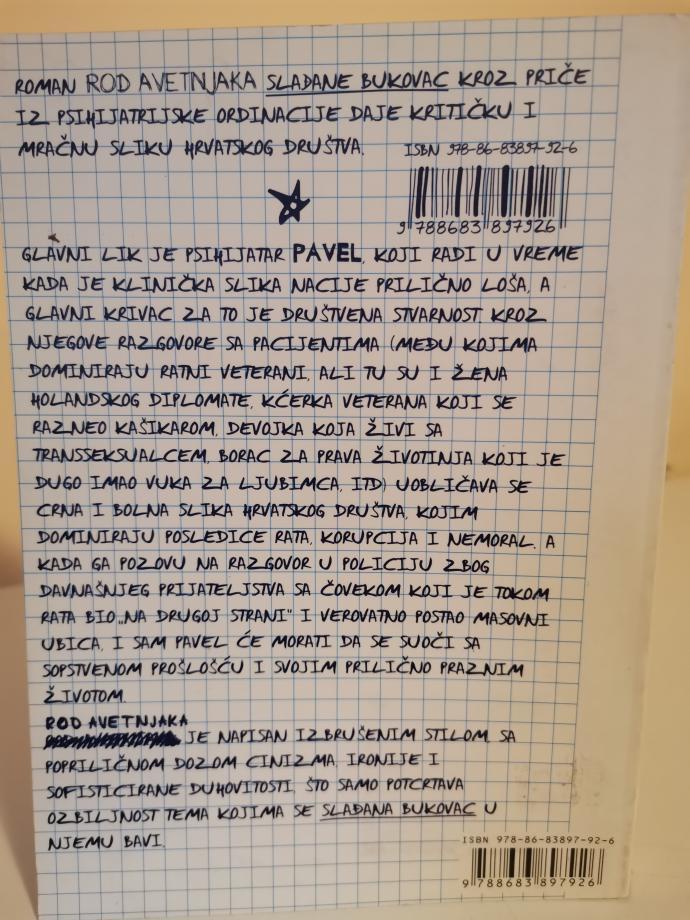 ROMAN ROD AVETNJAKA SLAĐANE BUKOVAC KROZ PRIČE
IZ PSIHIJATRIJSKE ORDINACIJE DAJE KRITIČKU I
MRAČNU SLIKU HRVATSKOG DRUŠTVA.
ISBN 978-86-83897-92-6
9 788683 897926
GLAVNI LIK JE PSIHIJATAR PAVEL, KOJI RADI U VREME
KADA JE KLINIČKA SLIKA NACIJE PRILIČNO LOŠA, A
GLAVNI KRIVAC ZA TO JE DRUŠTVENA STVARNOST. KROZ
NJEGOVE RAZGOVORE SA PACIJENTIMA (MEĐU KOJIMA
DOMINIRAJU RATNI VETERANI, ALI TU SU I ŽENA
HOLANDSKOG DIPLOMATE, KĆERKA VETERANA KOJI SE
RAZNEO KAŠIKAROM, DEVOJKA KOJA ŽIVI SA
TRANSSEKSUALCEM, BORAC ZA PRAVA ŽIVOTINJA KOJI JE
DUGO IMAO VUKA ZA LJUBIMCA, ITD) UOBLIČAVA SE
CRNA I BOLNA SLIKA HRVATSKOG DRUŠTVA, KOJIM
DOMINIRAJU POSLEDICE RATA, KORUPCIJA I NEMORAL. A
KADA GA POZOVU NA RAZGOVOR U POLICIJU ZBOG
DAVNAŠNJEG PRIJATELJSTVA SA ČOVEKOM KOJI JE TOKOM
RATA BIO „NA DRUGOJ STRANI" I VEROVATNO POSTAO MASOVNI
UBICA, I SAM PAVEL ĆE MORATI DA SE SUOČI SA
SOPSTVENOM PROŠLOŠĆU I SVOJIM PRILIČNO PRAZNIM
ŽIVOTOM.
ROD AVETNJAKA
JE NAPISAN IZBRUŠENIM STILOM, SA
POPRILIČNOM DOZOM CINIZMA, IRONIJE I
SOFISTICIRANE DUHOVITOSTI, ŠTO SAMO POTCRTAVA
OZBILJNOST TEMA KOJIMA SE SLAĐANA BUKOVAC U
NJEMU BAVI.
ISBN 978-86-83897-92-6
9 788683 897926